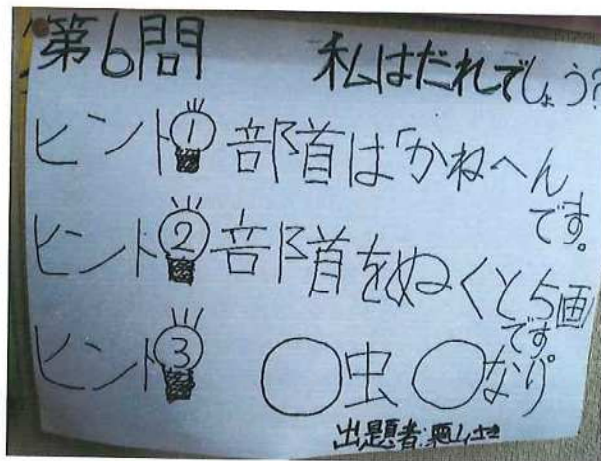 第6問 私はだれでしょう?
ヒント① 部首は「かねへん
です。
ヒント② 部首をぬくと5画
です
ヒント③ ○虫 ○なり
出題者: